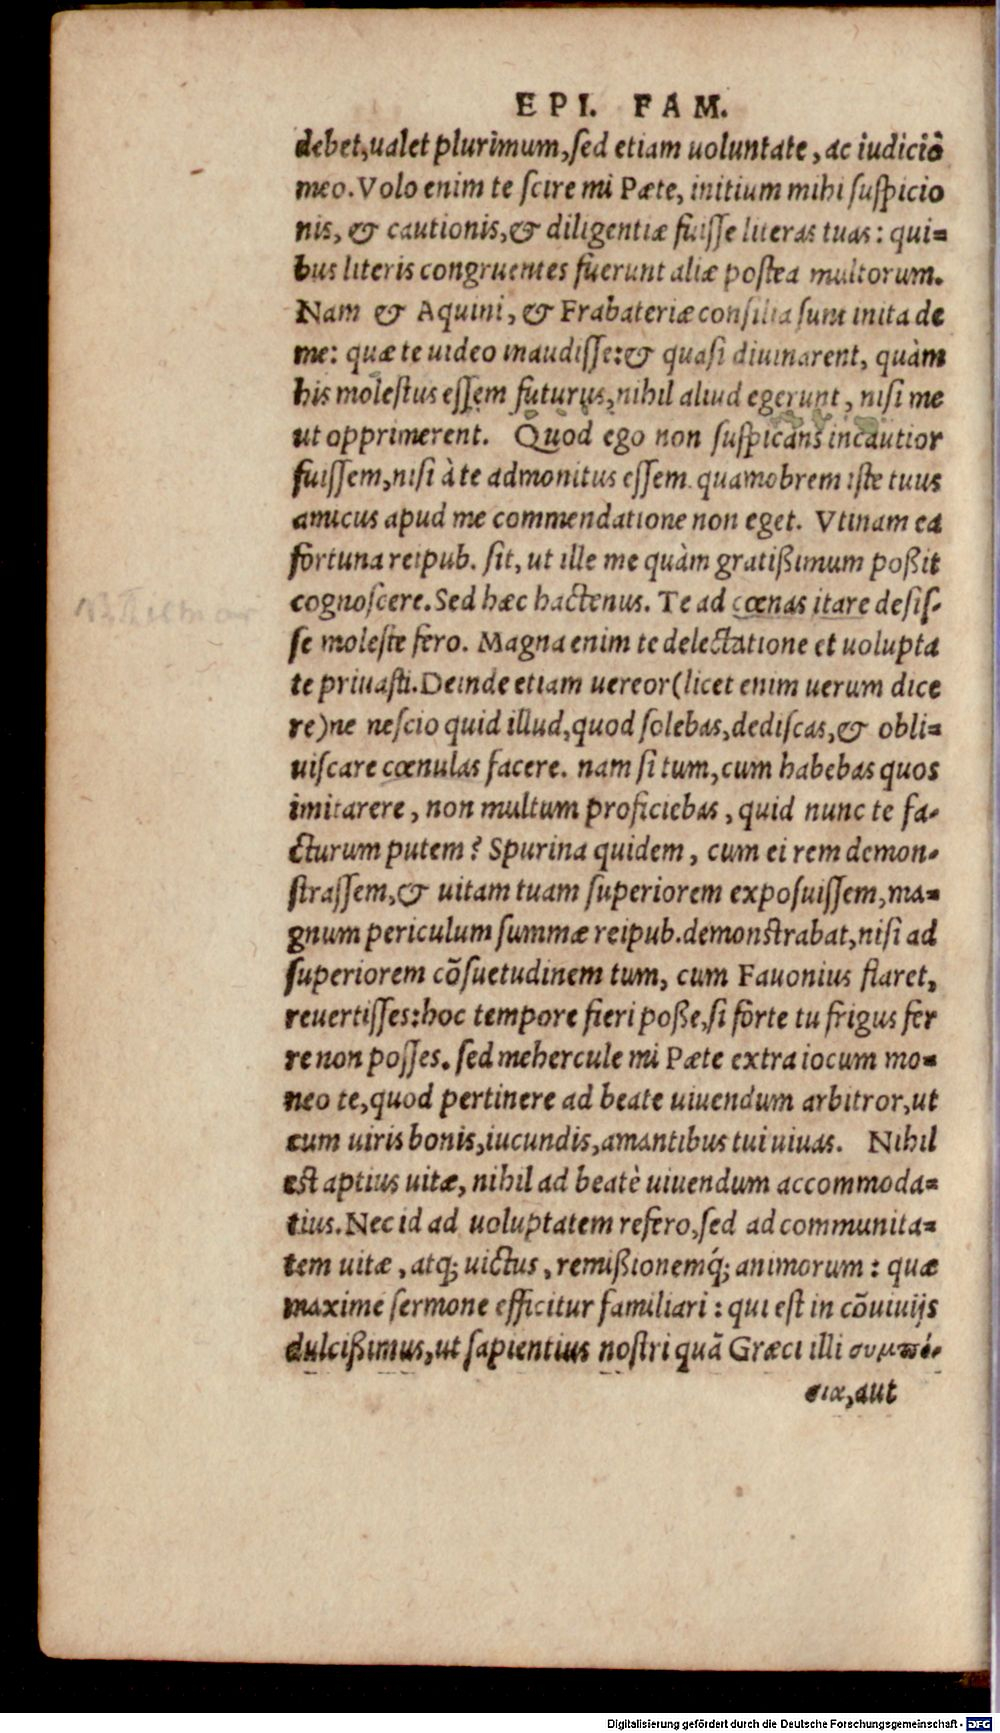 EPI. FAM.
debet,ualet plurimum,sed etiam uoluntate, ac iudicio
meo. Volo enim te scire mi Pæte, initium mihi suspicio
nis, & cautionis,& diligentiæ fuisse literas tuas: qui=
bus literis congruentes fuerunt aliæ postea multorum.
Nam & Aquini, & Frabateriæ consilia sunt inita de
me: quæ te uideo inaudisse:& quasi diuinarent, quàm
his molestus essem futurus,nihil aliud egerunt, nisi me
ut opprimerent. Quod ego non suspicans incautior
fuissem,nisi à te admonitus essem. quamobrem iste tuus
amicus apud me commendatione non eget. Vtinam ea
fortuna reipub. sit, ut ille me quàm gratißimum poßit
cognoscere. Sed hæc hactenus. Te ad cœnas itare desis-
se moleste fero. Magna enim te delectatione et uolupta
te priuasti. Deinde etiam uereor(licet enim uerum dice
re)ne nescio quid illud,quod solebas,dediscas,& obli=
uiscare cœnulas facere. nam si tum,cum habebas quos
imitarere, non multum proficiebas, quid nunc te fa-
cturum putem? Spurina quidem, cum ei rem demon-
strassem,& uitam tuam superiorem exposuissem,ma=
gnum periculum summæ reipub.demonstrabat,nisi ad
superiorem cōsuetudinem tum, cum Fauonius flaret,
reuertisses:hoc tempore fieri poße,si forte tu frigus fer
re non posses. sed mehercule mi Pæte extra iocum mo=
neo te,quod pertinere ad beate uiuendum arbitror,ut
cum uiris bonis,iucundis,amantibus tui uiuas. Nihil
est aptius uitæ, nihil ad beatè uiuendum accommoda=
tius. Nec id ad uoluptatem refero,sed ad communita=
tem uitæ, atq; uictus, remißionemq́; animorum: quæ
maxime sermone efficitur familiari: qui est in cōuiuijs
dulcißimus,ut sapientius nostri quā Græci illi συμπό-
σια,aut
Digitalisierung gefördert durch die Deutsche Forschungsgemeinschaft - DFG